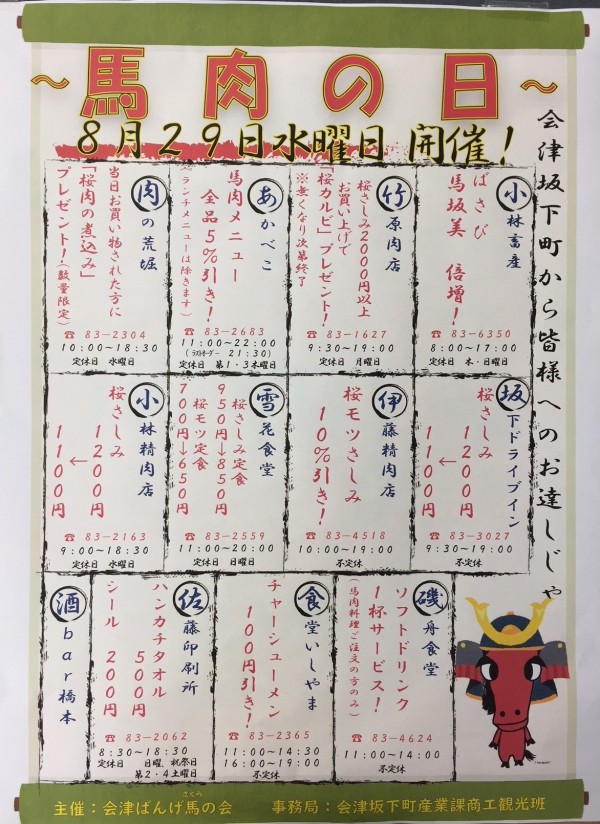 ～馬肉の日～
8月29日水曜日 開催！
会津坂下町から皆様へのお達しじゃ
小林畜産
ばさび
馬坂美 倍増！
☎ 83-6350
8:00～17:00
定休日 木・日曜日
竹原肉店
桜さしみ2000円以上
お買い上げで
「桜カルビ」プレゼント！
※無くなり次第終了
☎ 83-1627
9:30～19:00
定休日 月曜日
あかべこ
馬肉メニュー
全品5%引き！
(ランチメニューは除きます)
☎ 83-2683
11:00～22:00
(ラストオーダー 21:30)
定休日 第1・3木曜日
肉の荒堀
当日お買い物された方に
「桜肉の煮込み」
プレゼント！(数量限定)
☎ 83-2304
10:00～18:30
定休日 水曜日
坂下ドライブイン
桜さしみ
1200円
↓
1100円
☎ 83-3027
9:30～19:00
不定休
伊藤精肉店
桜モツさしみ
10%引き！
☎ 83-4518
10:00～19:00
不定休
雪花食堂
桜さしみ定食
950円→850円
桜モツ定食
700円→650円
☎ 83-2559
11:00～20:00
定休日 日曜日
小林精肉店
桜さしみ
1200円
↓
1100円
☎ 83-2163
9:00～18:30
定休日 水曜日
磯舟食堂
ソフトドリンク
1杯サービス！
(馬肉料理ご注文の方のみ)
☎ 83-4624
11:00～14:00
不定休
食堂いしやま
チャーシューメン
100円引き！
☎ 83-2365
11:00～14:30
16:00～19:00
不定休
佐藤印刷所
ハンカチタオル
500円
シール 200円
☎ 83-2062
8:30～18:30
定休日 日曜、祝祭日
第2・4土曜日
酒bar橋本
主催：会津ばんげ馬の会 事務局：会津坂下町産業課商工観光班
さくら